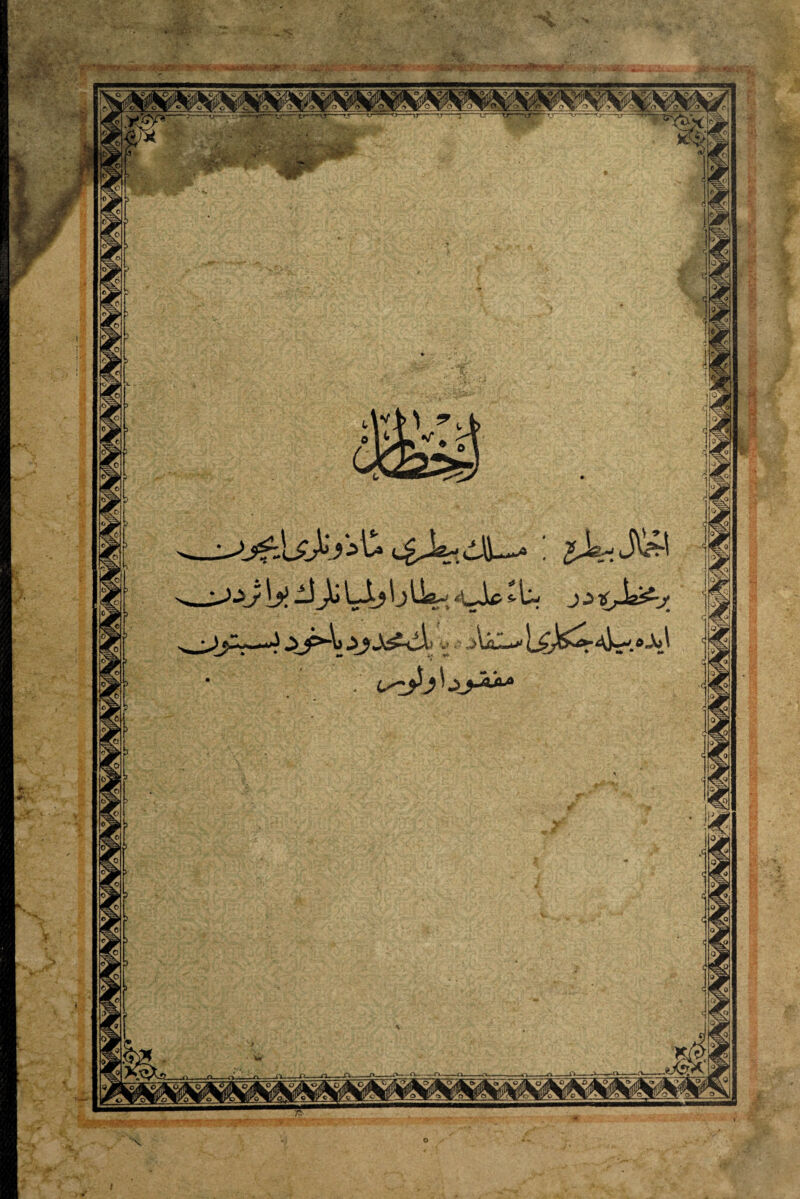 اخطار
اجمال بيطرى مسلك بيطرى مأذونلرى ايچون
بر مخطره در بناء عليه بيطار اولميانلرك بو اثردن
ايده بيله جكلرى استفاده پك محدود ياخود بسبتون
مفقود اولور